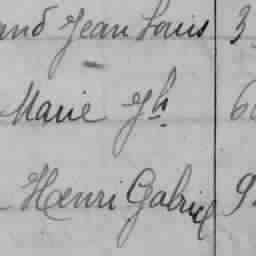 and Jean Louis 3
Marie Jh 60
Henri Gabriel 9